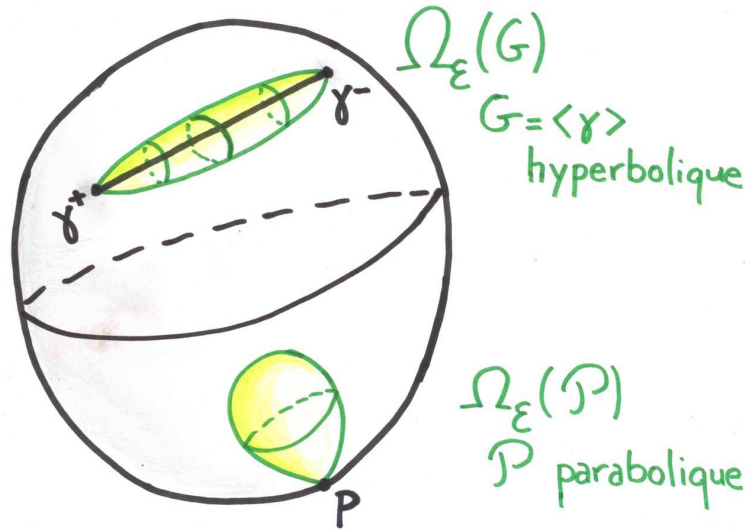 Ωε(G)
γ-
G=<γ>
hyperbolique
γ+
Ωε(P)
P parabolique
P